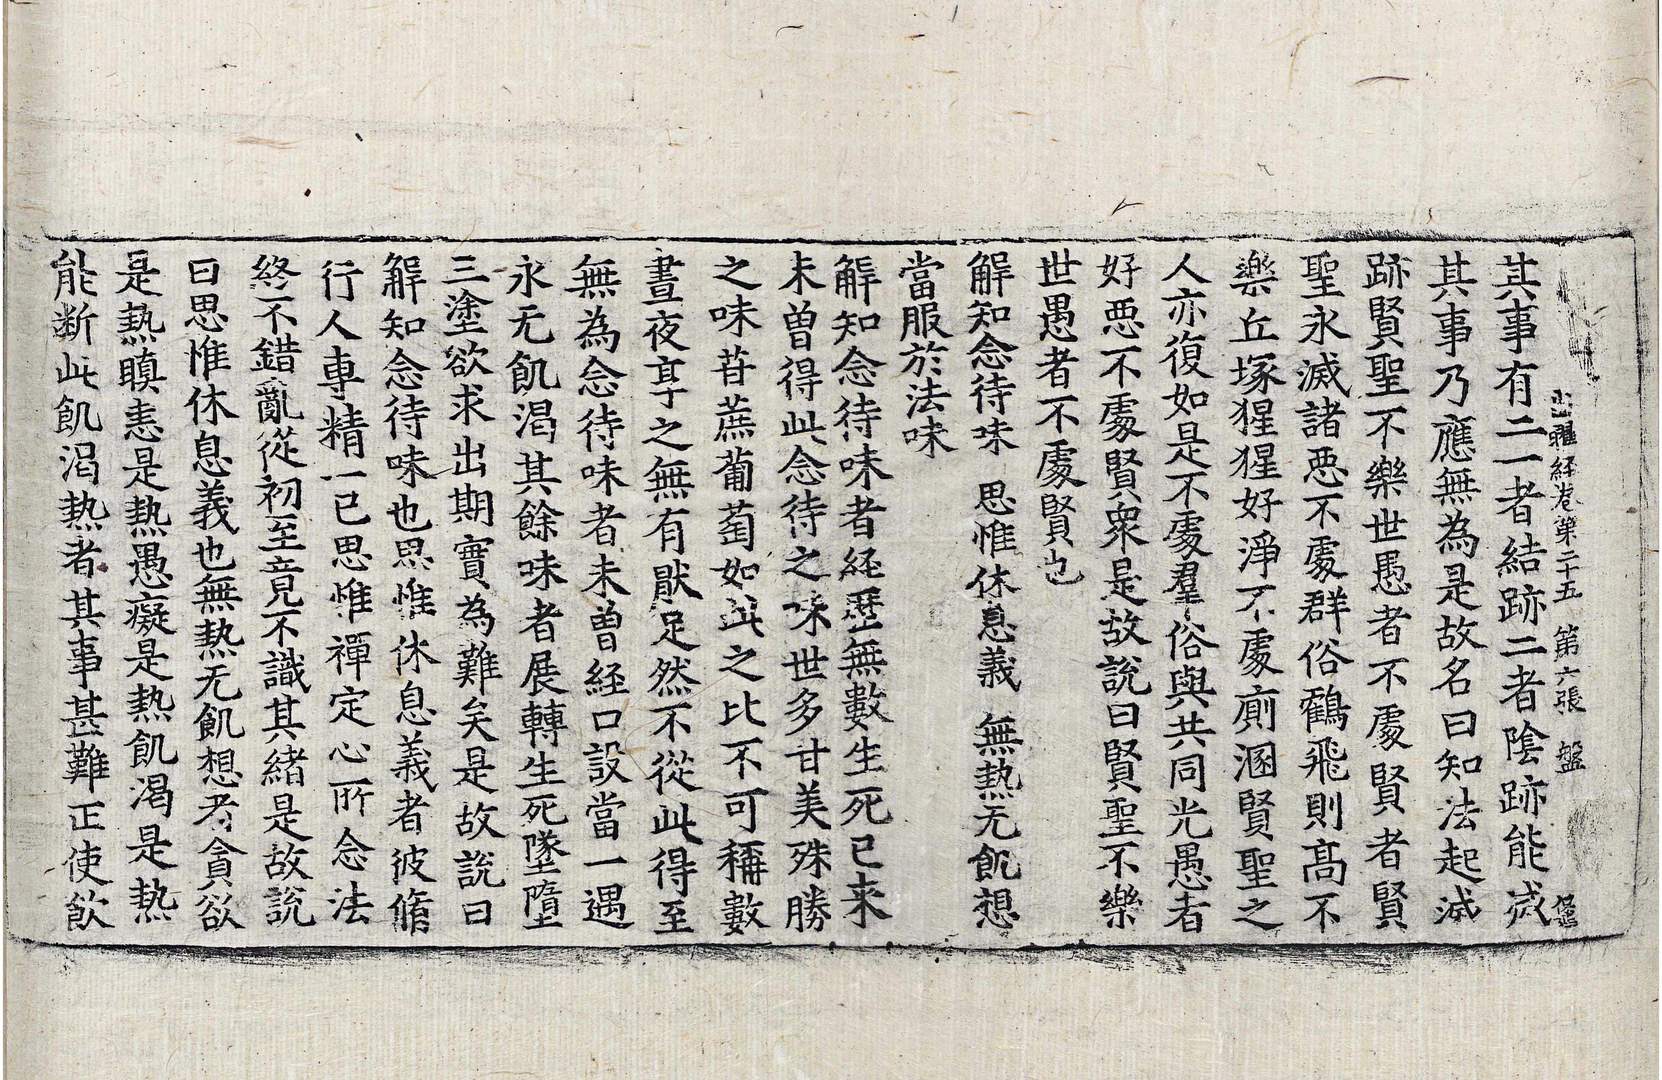 出曜経卷第二十五 第六張 盤
其事有二一者結跡二者陰跡能滅
其事乃應無為是故名曰知法起滅
跡賢聖不樂世愚者不處賢者賢
聖永滅諸惡不處群俗鶴飛則高不
樂丘塚猩猩好淨不處廁溷賢聖之
人亦復如是不處羣俗與共同光愚者
好惡不處賢衆是故說曰賢聖不樂
世愚者不處賢也
解知念待味 思惟休息義 無熱无飢想
當服於法味
解知念待味者経歷無數生死已来
未曽得此念待之味世多甘美殊勝
之味苷蔗葡萄如此之比不可稱數
晝夜亨之無有猒足然不從此得至
無為念待味者未曽経口設當一遇
永无飢渴其餘味者展轉生死墜墮
三塗欲求出期實為難矣是故說曰
解知念待味也思惟休息義者彼脩
行人專精一已思惟禪定心所念法
終不錯亂從初至竟不識其緒是故說
曰思惟休息義也無熱无飢想者貪欲
是熱瞋恚是熱愚癡是熱飢渴是熱
能断此飢渴熱者其事甚難正使飲